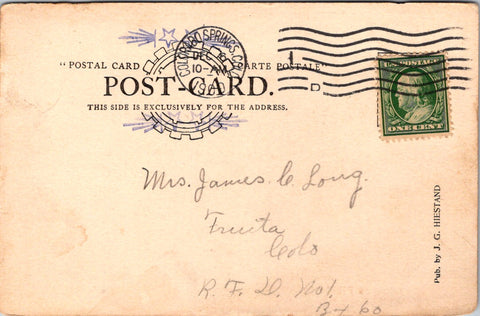 COLORADO SPRINGS, COLO.
DEC
10-A
190
1
D
U.S. POSTAGE
ONE CENT
"POSTAL CARD CARTE POSTALE"
POST-CARD.
THIS SIDE IS EXCLUSIVELY FOR THE ADDRESS.
Mrs. James C. Long.
Fruita
Colo
R. F. D. No 1.
Bx 60
Pub. by J. G. HIESTAND